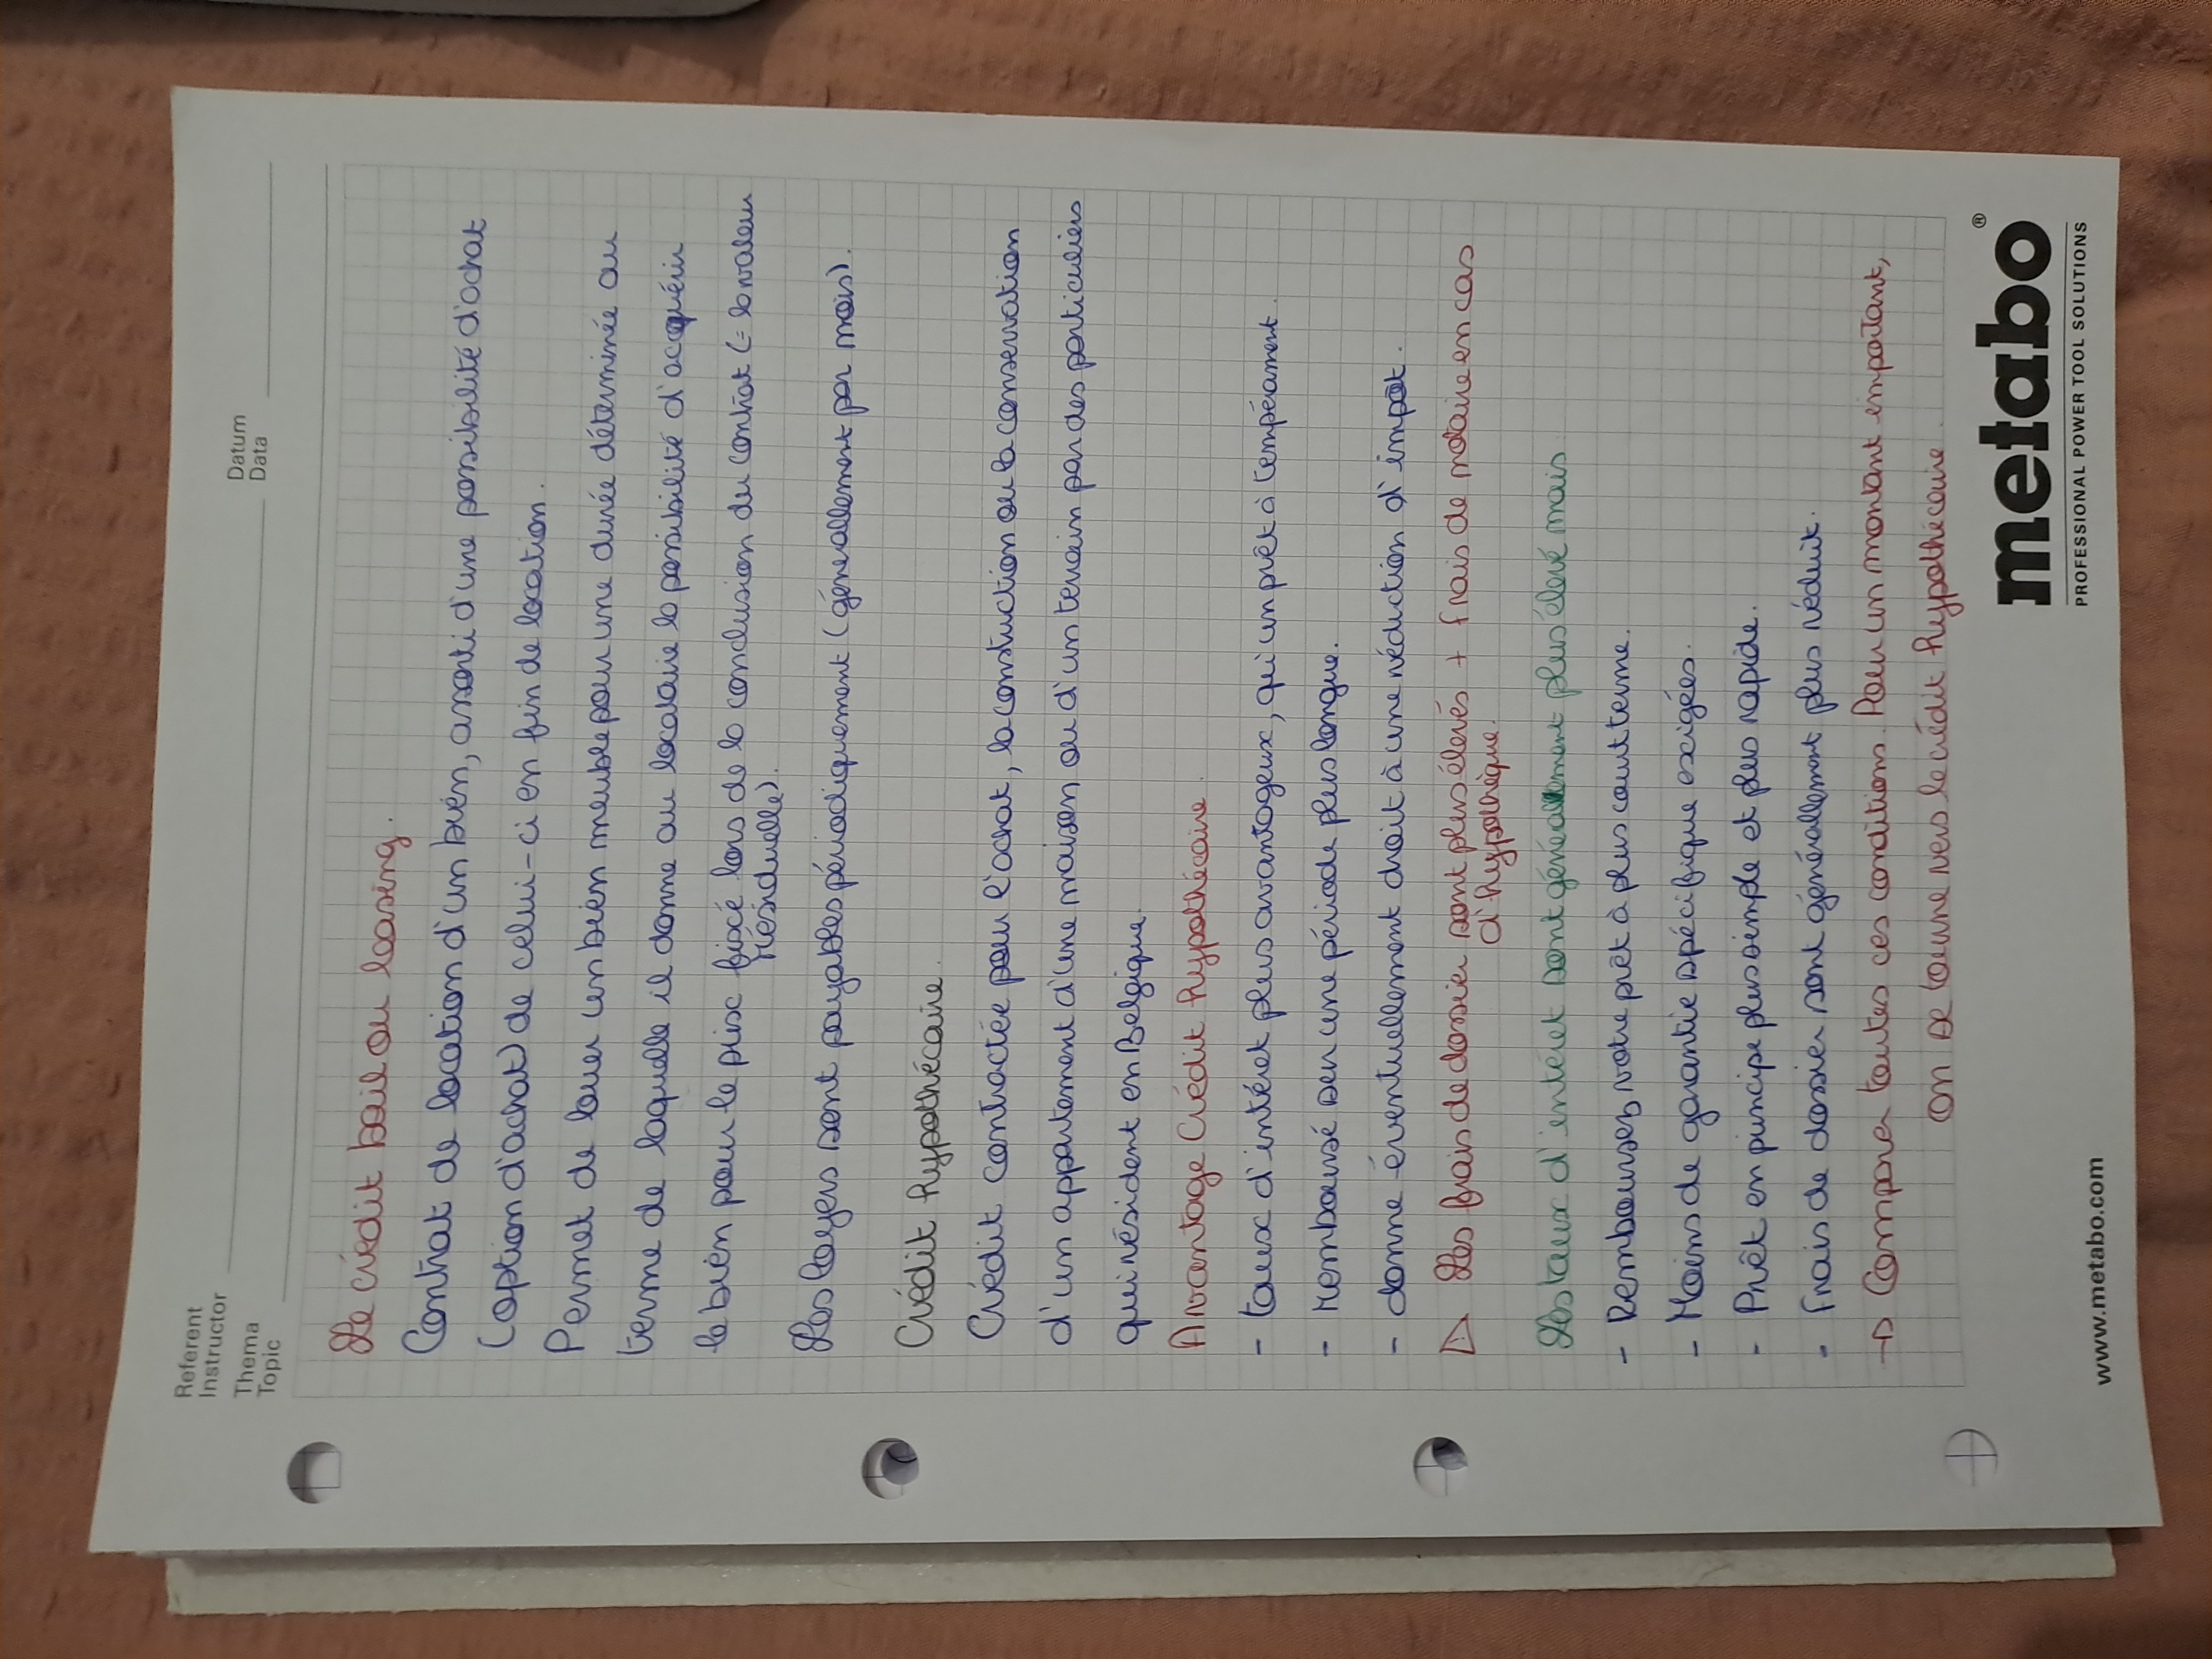 Referent
Instructor
Thema
Topic
Datum
Data
Le crédit bail ou leasing.
Contrat de location d'un bien, assorti d'une possibilité d'achat
(option d'achat) de celui-ci en fin de location.
Permet de louer un bien meuble pour une durée déterminée au
terme de laquelle il donne au locataire la possibilité d'acquérir
le bien pour le prix fixé lors de la conclusion du contrat (= la valeur
résiduelle).
Les loyers sont payables périodiquement (généralement par mois).
Crédit hypothécaire.
Crédit contractée pour l'achat, la construction ou la conservation
d'un appartement d'une maison ou d'un terrain par des particuliers
qui résident en Belgique.
Avantage Crédit hypothécaire.
- taux d'intérêt plus avantageux, qu'un prêt à tempérament.
- remboursé sur une période plus longue.
- donne éventuellement droit à une réduction d'impôt.
⚠ Les frais de dossier sont plus élevés + frais de notaire en cas
d'hypothèque.
Les taux d'intérêt sont généralement plus élevé mais
- Remboursez votre prêt à plus court terme.
- Moins de garantie spécifique exigées.
- Prêt en principe plus simple et plus rapide.
- Frais de dossier sont généralement plus réduit.
→ Comparer toutes ces conditions. Pour un montant important,
on se tourne vers le crédit hypothécaire.
www.metabo.com
metabo®
PROFESSIONAL POWER TOOL SOLUTIONS